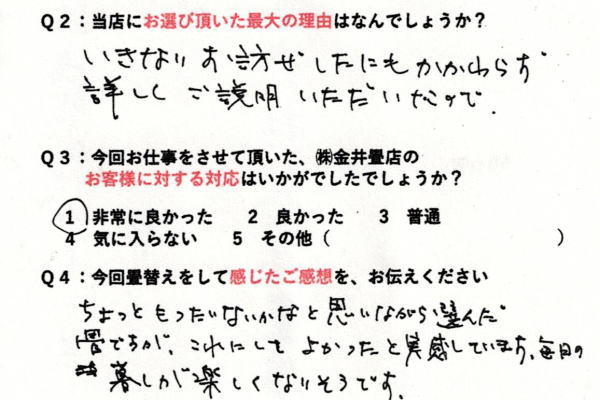 Q2:当店にお選び頂いた最大の理由はなんでしょうか？
いきなりお訪ぜしたにもかかわらず
詳しくご説明いただいたので.
Q3:今回お仕事をさせて頂いた、㈱金井畳店の
お客様に対する対応はいかがでしたでしょうか？
1 非常に良かった 2 良かった 3 普通
4 気に入らない 5 その他（ ）
Q4:今回畳替えをして感じたご感想を、お伝えください
ちょっともったいないかなと思いながら選んだ
畳ですが、これにしてよかったと実感しています。毎日の
暮しが楽しくなりそうです.